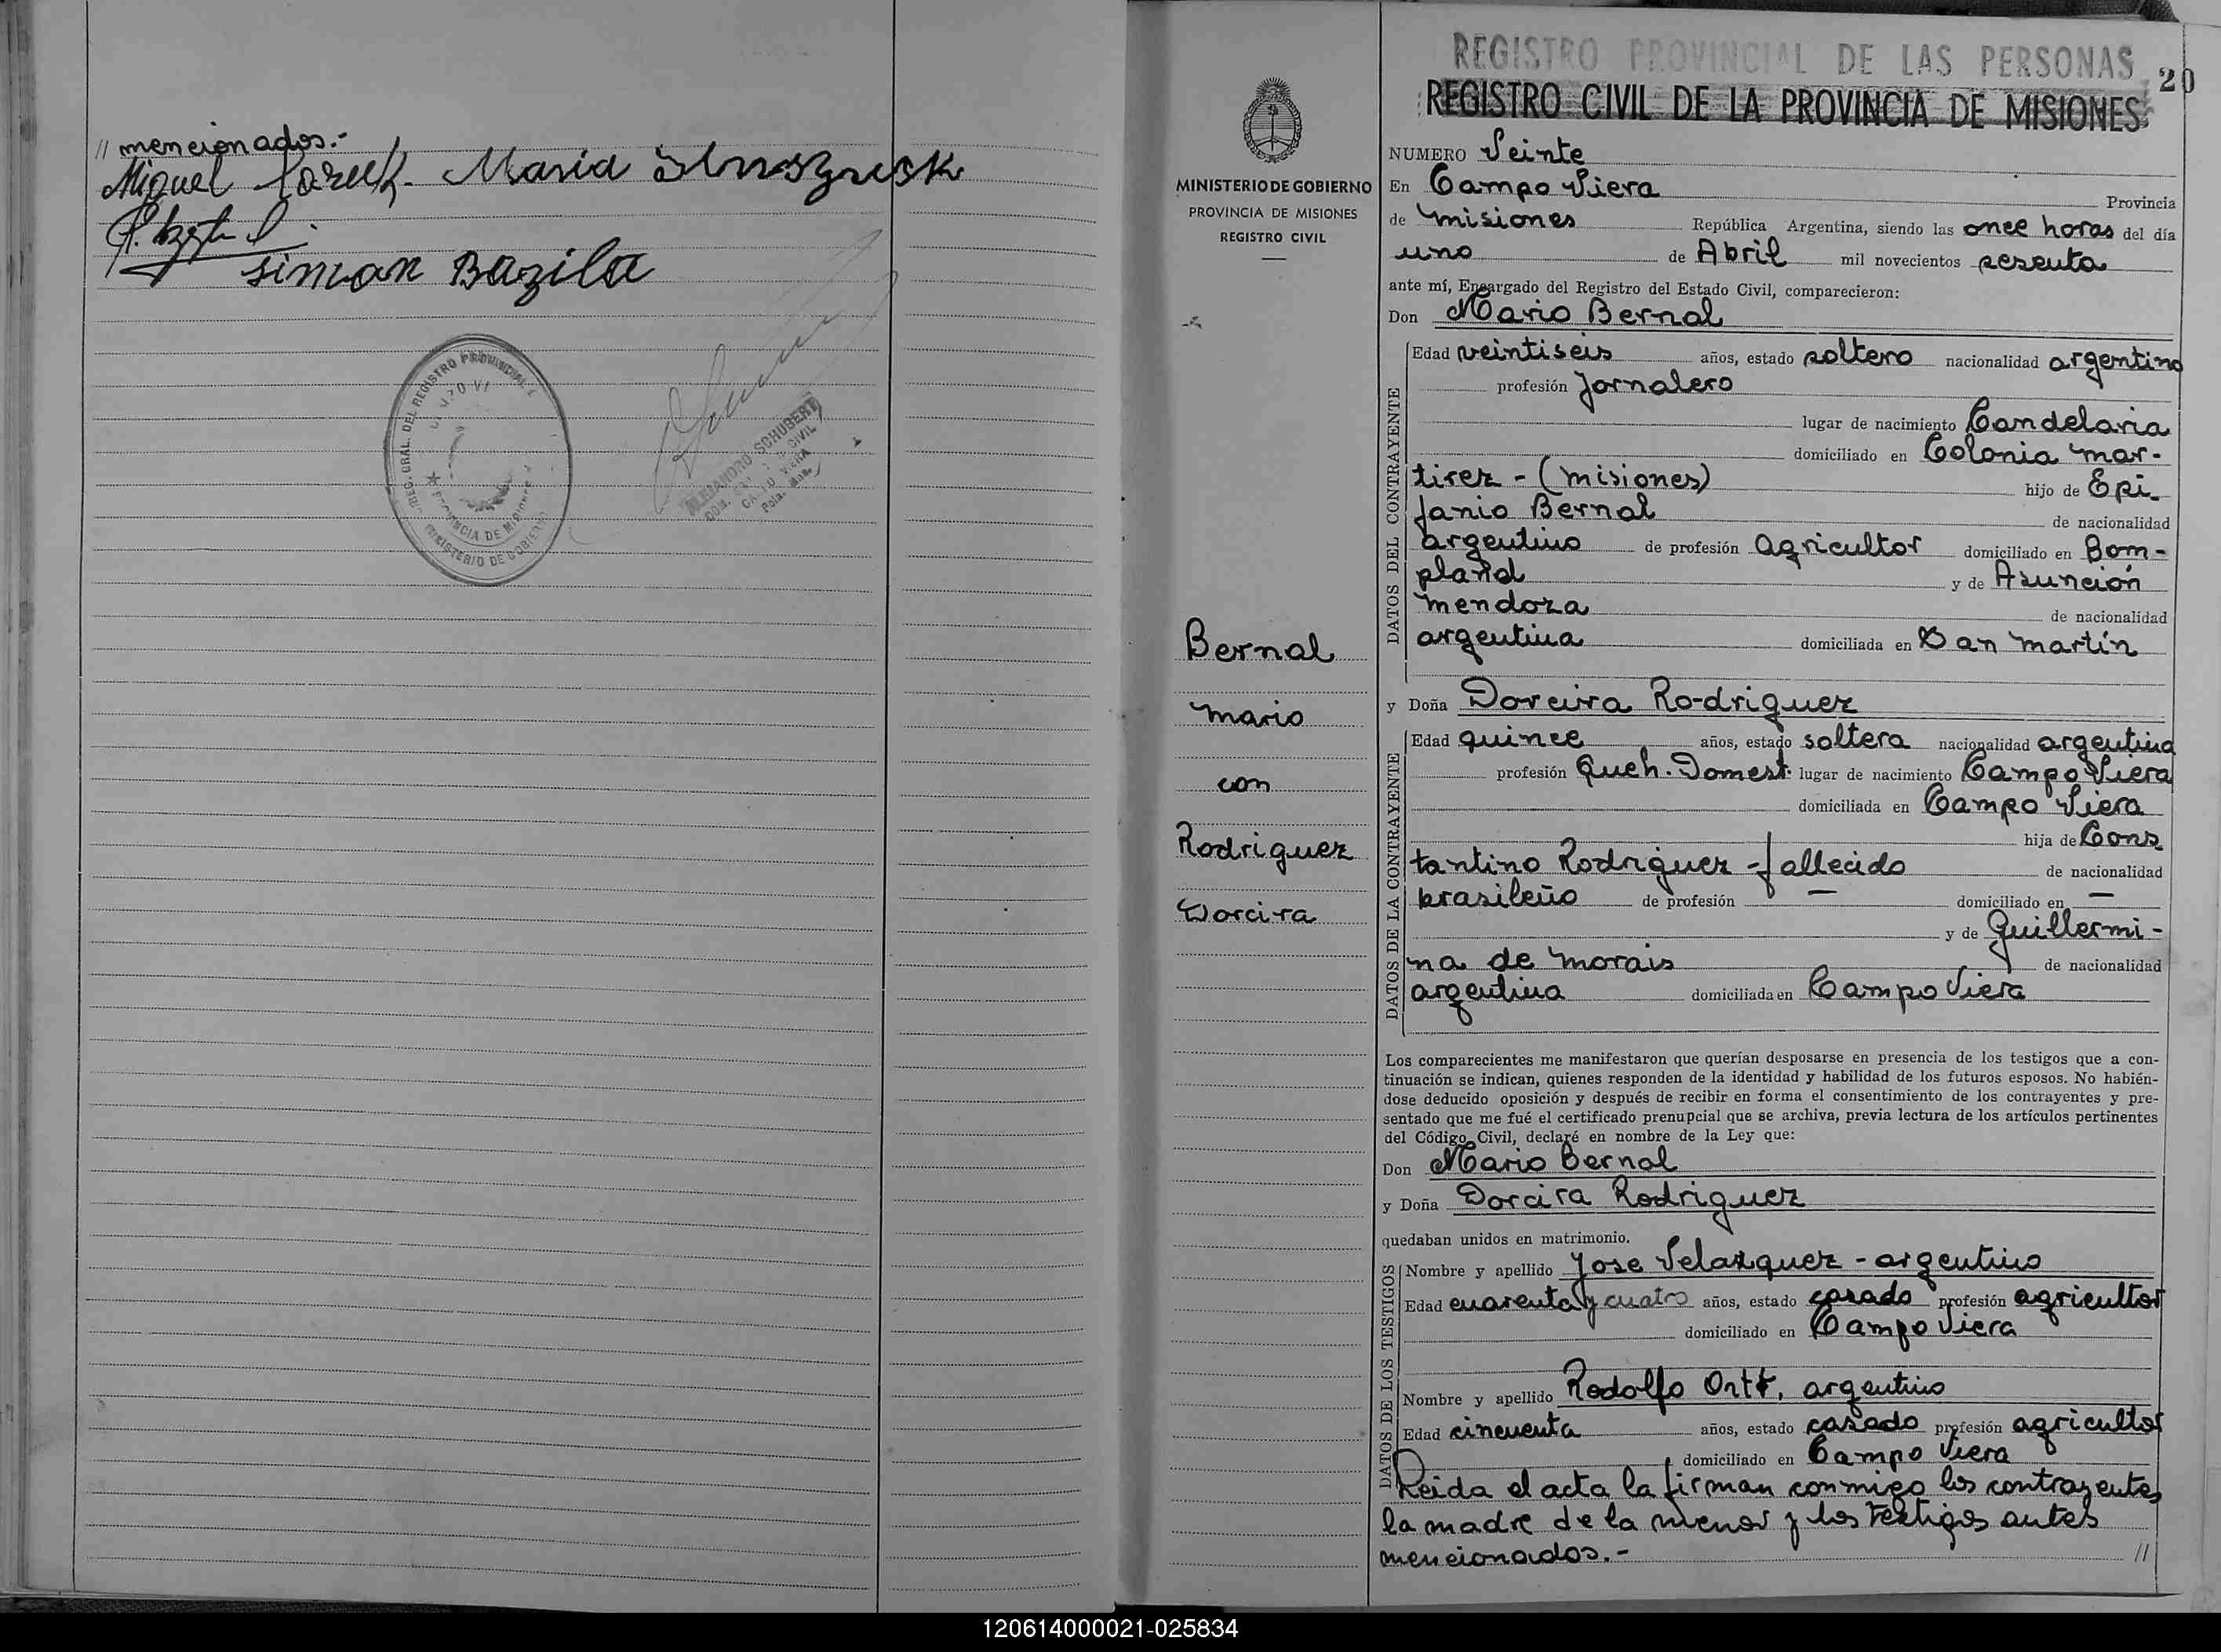 // mencionados.-
Miguel
Maria
Simon Bazila
REG. GRAL. DEL REGISTRO PROVINCIAL
PROVINCIA DE MISIONES
MINISTERIO DE GOBIERNO
ALEJANDRO SCHUBERT
CIVIL
CAMPO VIERA
REGISTRO PROVINCIAL DE LAS PERSONAS
20
REGISTRO CIVIL DE LA PROVINCIA DE MISIONES
MINISTERIO DE GOBIERNO
PROVINCIA DE MISIONES
REGISTRO CIVIL
Bernal
Mario
con
Rodriguez
Dorcira
NUMERO Veinte
En Campo Viera Provincia
de Misiones República Argentina, siendo las once horas del día
uno de Abril mil novecientos sesenta
ante mí, Encargado del Registro del Estado Civil, comparecieron:
Don Mario Bernal
DATOS DEL CONTRAYENTE
Edad veintiseis años, estado soltero nacionalidad argentino
profesión Jornalero
lugar de nacimiento Candelaria
domiciliado en Colonia Mar-
tirez - (Misiones) hijo de Epi-
fanio Bernal de nacionalidad
argentino de profesión Agricultor domiciliado en Bom-
pland y de Asunción
Mendoza de nacionalidad
argentina domiciliada en San Martín
y Doña Dorcira Rodriguez
DATOS DE LA CONTRAYENTE
Edad quince años, estado soltera nacionalidad argentina
profesión Queh. Domest. lugar de nacimiento Campo Viera
domiciliada en Campo Viera
hija de Cons
tantino Rodriguez - fallecido de nacionalidad
brasileño de profesión — domiciliado en —
y de Guillermi-
na de Morais de nacionalidad
argentina domiciliada en Campo Viera
Los comparecientes me manifestaron que querían desposarse en presencia de los testigos que a con-
tinuación se indican, quienes responden de la identidad y habilidad de los futuros esposos. No habién-
dose deducido oposición y después de recibir en forma el consentimiento de los contrayentes y pre-
sentado que me fué el certificado prenupcial que se archiva, previa lectura de los artículos pertinentes
del Código Civil, declaré en nombre de la Ley que:
Don Mario Bernal
y Doña Dorcira Rodriguez
quedaban unidos en matrimonio.
DATOS DE LOS TESTIGOS
Nombre y apellido Jose Velazquez - argentino
Edad cuarenta y cuatro años, estado casado profesión agricultor
domiciliado en Campo Viera
Nombre y apellido Rodolfo Ortt, argentino
Edad cincuenta años, estado casado profesión agricultor
domiciliado en Campo Viera
Leida el acta la firman conmigo los contrayentes
la madre de la menor y los testigos antes
mencionados.- //
120614000021-025834